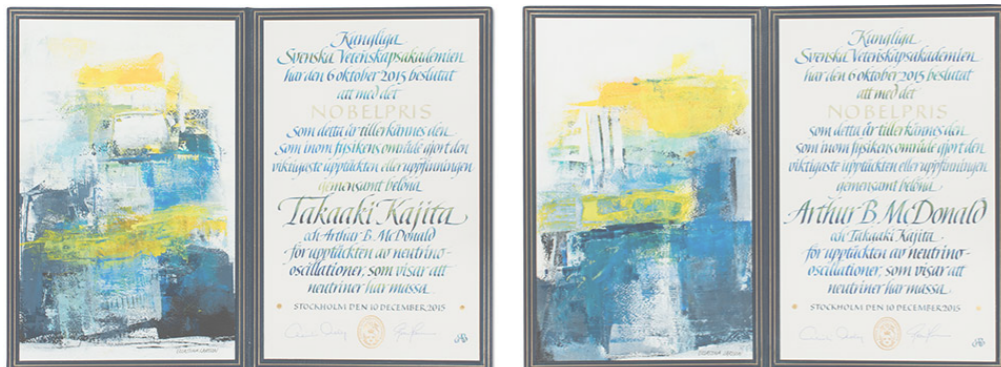 Kungliga
Svenska Vetenskapsakademien
har den 6 oktober 2015 beslutat
att med det
NOBELPRIS
som detta år tillerkännes den
som inom fysikens område gjort den
viktigaste upptäckten eller uppfinningen
gemensamt belöna
Takaaki Kajita
och Arthur B. McDonald
för upptäckten av neutrino-
oscillationer, som visar att
neutriner har massa
STOCKHOLM DEN 10 DECEMBER 2015
Kungliga
Svenska Vetenskapsakademien
har den 6 oktober 2015 beslutat
att med det
NOBELPRIS
som detta år tillerkännes den
som inom fysikens område gjort den
viktigaste upptäckten eller uppfinningen
gemensamt belöna
Arthur B. McDonald
och Takaaki Kajita
för upptäckten av neutrino-
oscillationer, som visar att
neutriner har massa
STOCKHOLM DEN 10 DECEMBER 2015